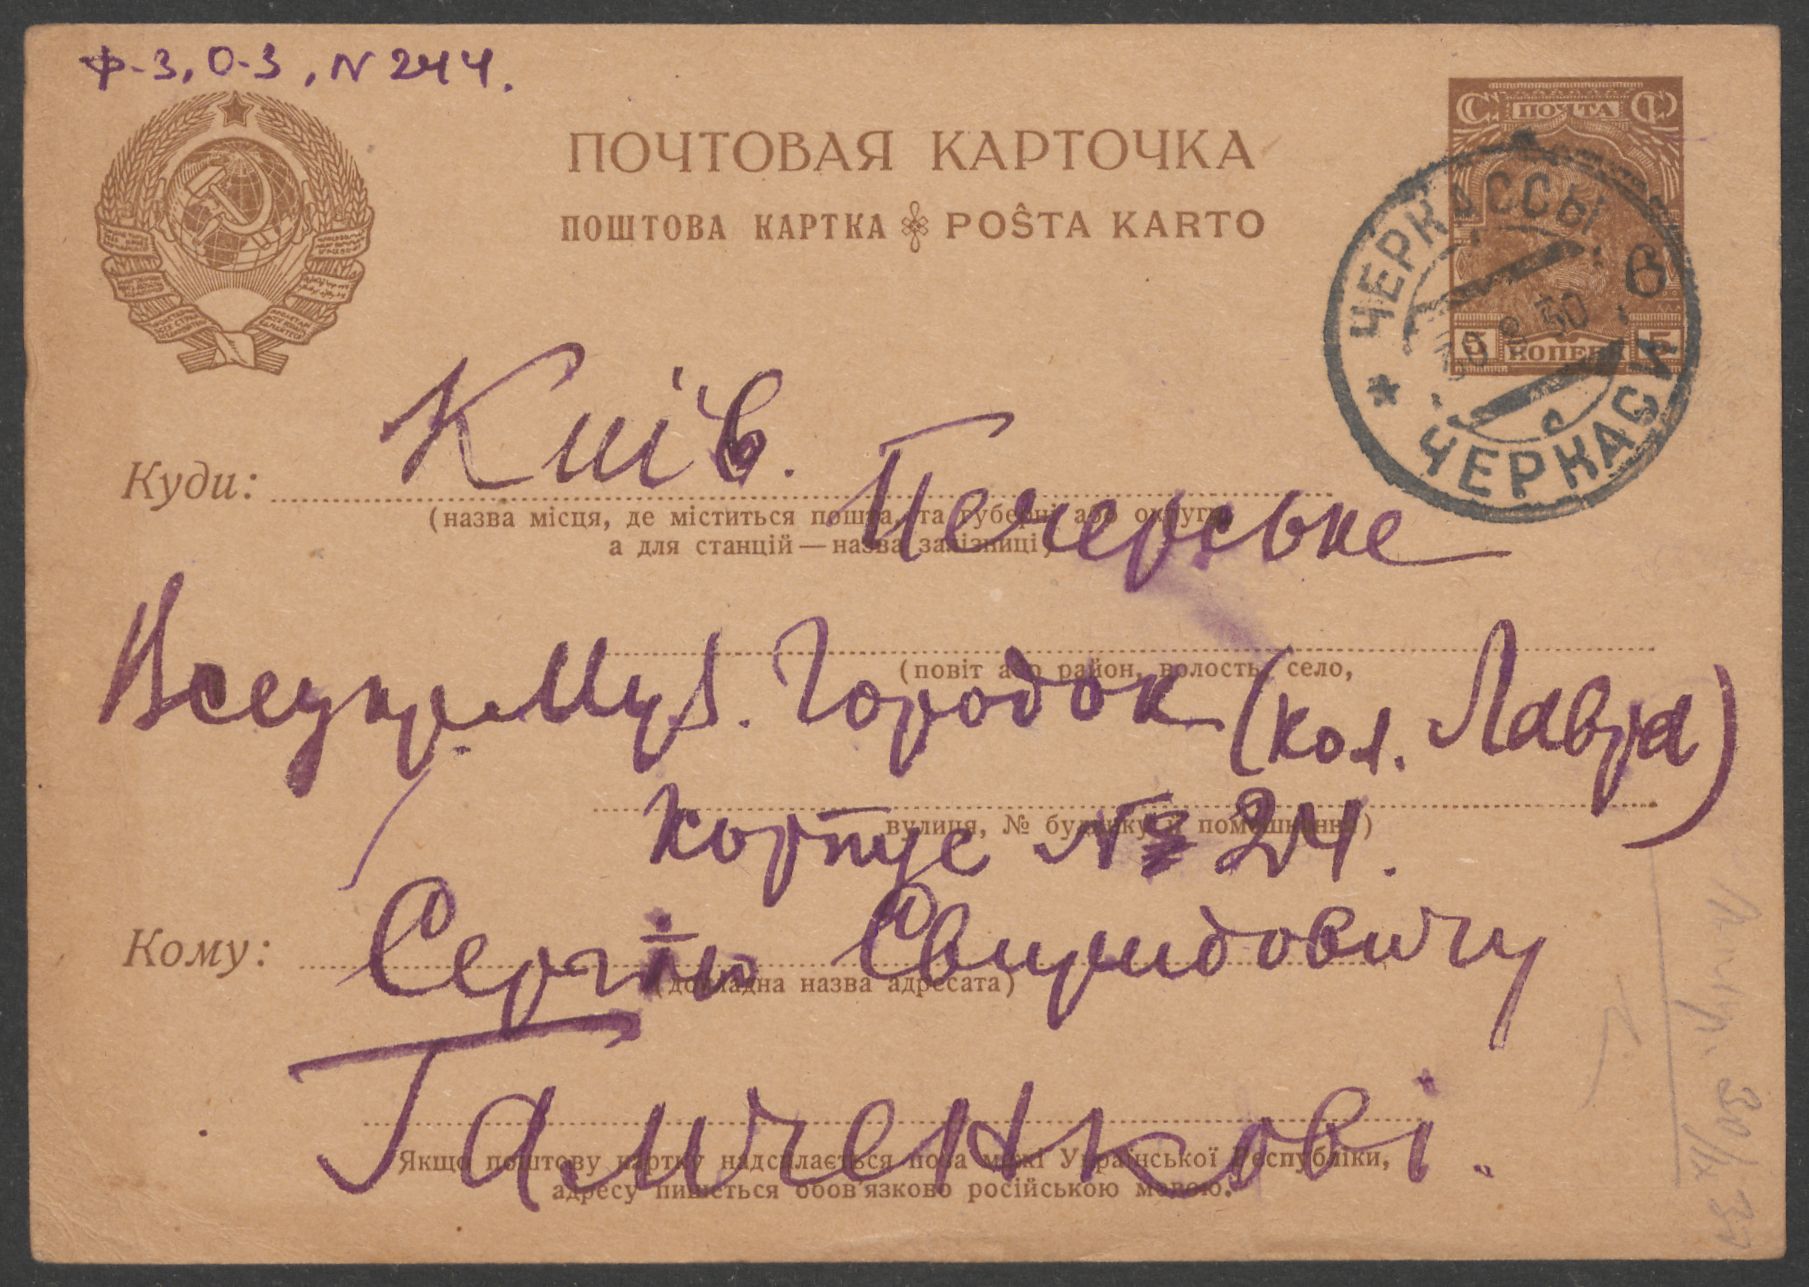 Ф-3, О-3, N 244.
ПОЧТОВАЯ КАРТОЧКА
ПОШТОВА КАРТКА POŜTA KARTO
ПОЧТА
5 КОПЕЕК 5
ЧЕРКАССЫ
8 30
в
ЧЕРКАСИ
Київ.
Куди:
(назва місця, де міститься пошта, та губерні або округи
а для станцій — назва залізниці)
Печерське
(повіт або район, волость, село,
Всеукр. Муз. Городок (кол. Лавра)
вулиця, № будинку й помешкання)
Корпус № 24.
Кому: Сергію Свиридовичу
(докладна назва адресата)
Гамченкові.
Якщо поштову картку надсилається поза межі Української Республіки,
адресу пишеться обов'язково російською мовою.